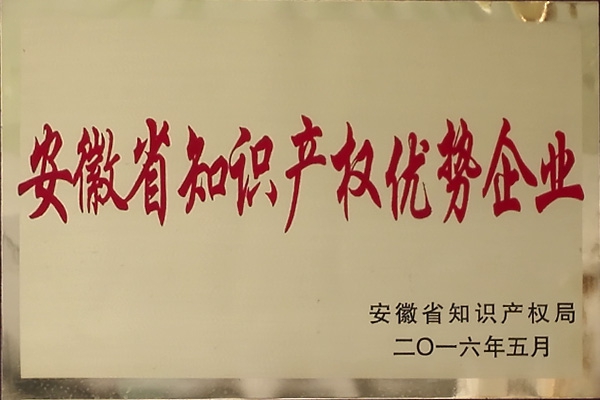 安徽省知识产权优势企业
安徽省知识产权局
二〇一六年五月